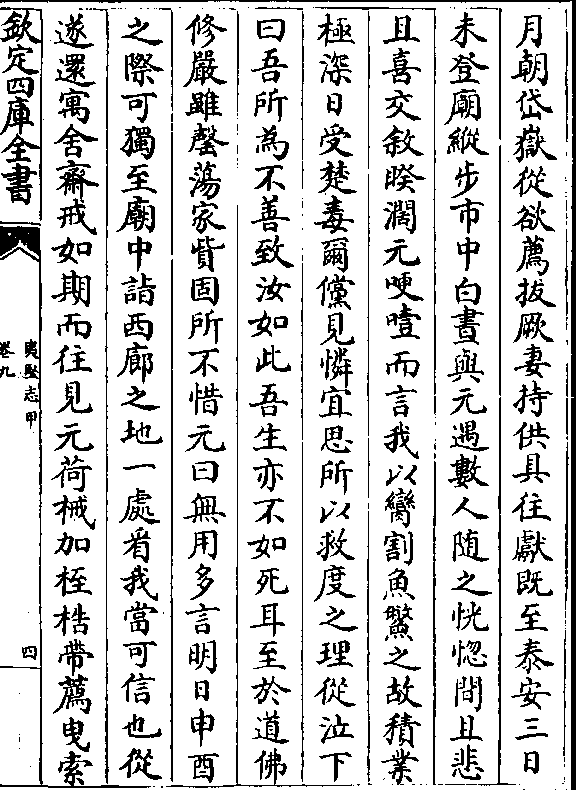 月朝岱嶽從欲薦拔厥妻持供具往獻既至泰安三日
未登廟縱步市中白晝與元遇數人随之恍惚間且悲
且喜交敘暌濶元哽噎而言我以臠割魚鱉之故積業
極深日受楚毒爾儻見憐宜思所以救度之理從泣下
曰吾所為不善致汝如此吾生亦不如死耳至於道佛
修嚴雖罄蕩家貲固所不惜元曰無用多言明日申酉
之際可獨至廟中詣西廊之地一處看我當可信也從
遂還寓舍齋戒如期而往見元荷械加桎梏帶薦曳索
欽定四庫全書
夷堅志甲
卷九
四